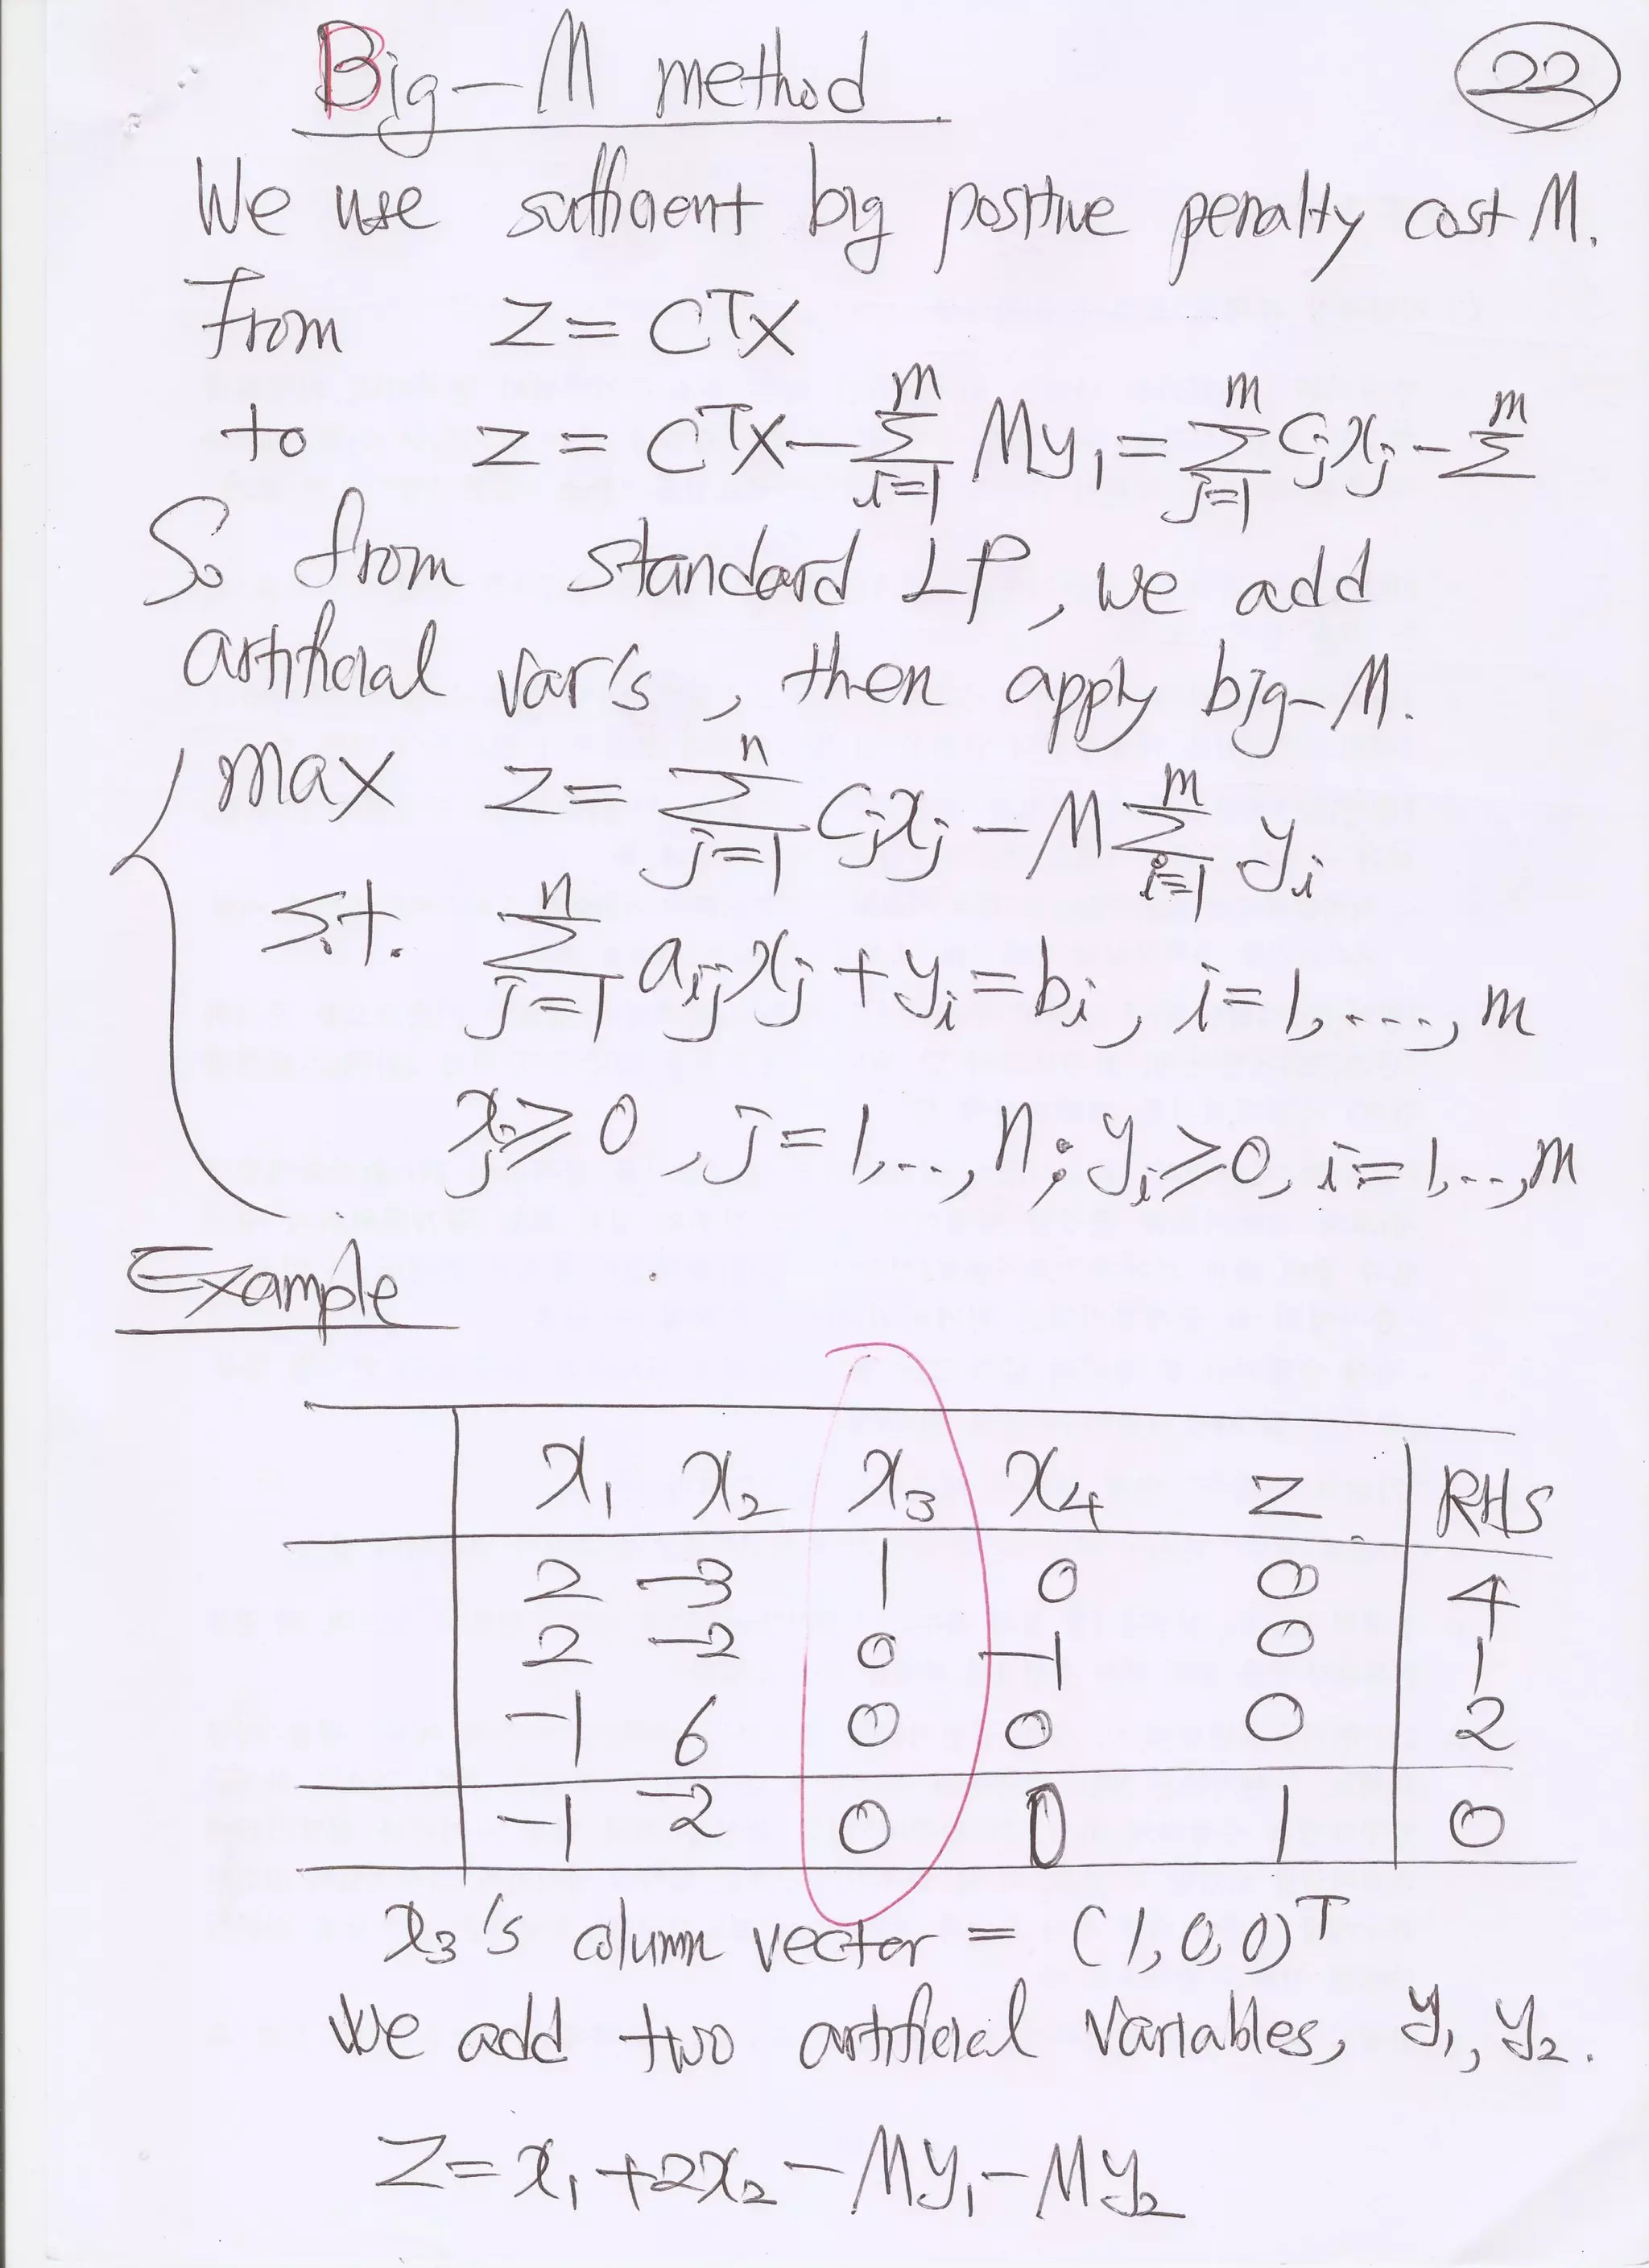 Big-M method
22
We use sufficient big positive penalty cost M.
From z = CᵀX
to z = CᵀX - ∑_{i=1}^{m} My₁ = ∑_{j=1}^{m} cⱼxⱼ - ∑^{m}
So from standard LP, we add
artificial var's, then apply big-M.
max z = ∑_{j=1}^{n} cⱼxⱼ - M ∑_{i=1}^{m} yᵢ
s.t. ∑_{j=1}^{n} aᵢⱼxⱼ + yᵢ = bᵢ, i = 1, ..., m
xⱼ ≥ 0, j = 1, .., n; yᵢ ≥ 0, i = 1, .., m
Example
x₁ x₂ x₃ x₄ z RHS
2 -3 1 0 0 4
2 -2 0 -1 0 1
-1 6 0 0 0 2
-1 -2 0 0 1 0
x₃'s column vector = (1, 0, 0)ᵀ
We add two artificial variables, y₁, y₂.
z = x₁ + 2x₂ - My₁ - My₂